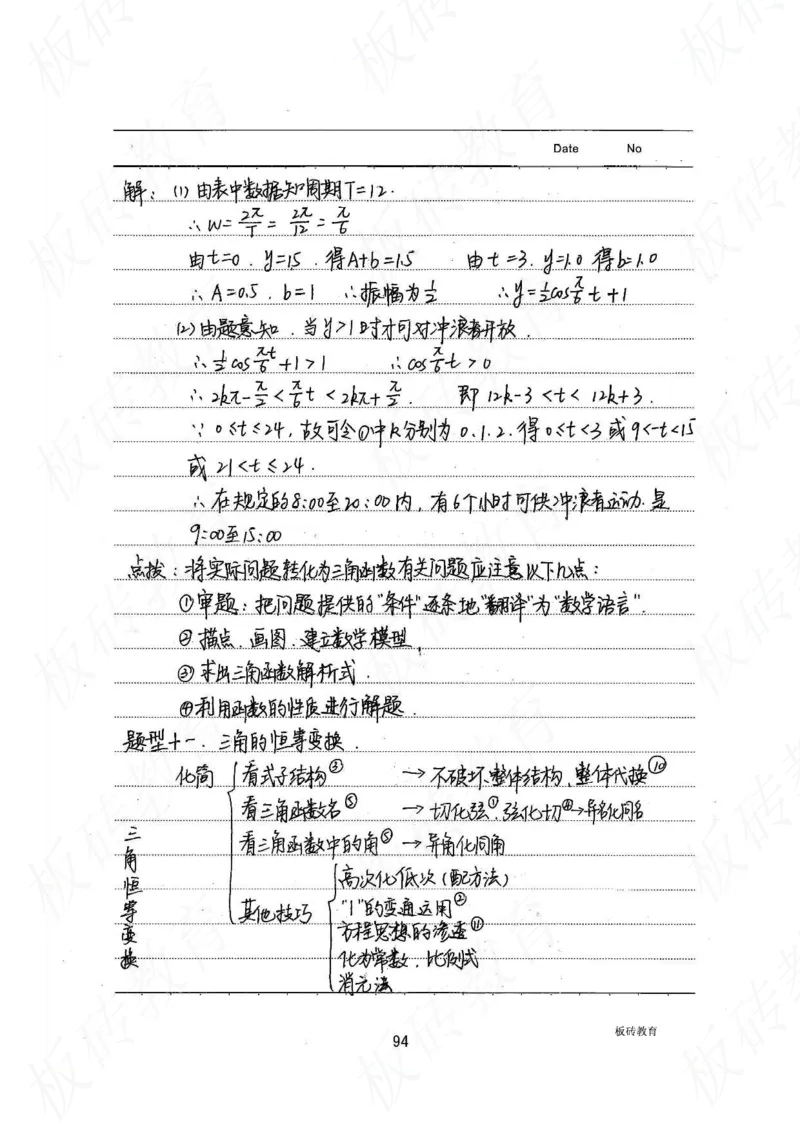 Date No
解：(1) 由表中数据知周期T=12.
∴ W=2π/T=2π/12=π/6
由t=0．y=1.5．得A+b=1.5 由t=3．y=1.0 得b=1.0
∴ A=0.5．b=1 ∴振幅为1/2 ∴y=1/2cosπ/6 t+1
(2)由题意知．当y>1时才可对冲浪者开放．
∴ 1/2 cos πt/6 +1>1 ∴cos π/6 t>0
∴ 2kπ-π/2<π/6 t<2kπ+π/2． 即 12k-3<t<12k+3．
∵ 0≤t≤24，故可令①中k分别为 0.1.2．得0≤t<3或9<t<15
或 21<t≤24．
∴ 在规定的8:00至20:00内，有6个小时可供冲浪者运动．是
9:00至15:00
点拨：将实际问题转化为三角函数有关问题应注意以下几点：
①审题：把问题提供的“条件”逐条地“翻译”为“数学语言”．
②描点．画图．建立数学模型．
③求出三角函数解析式．
④利用函数的性质进行解题．
题型十一．三角的恒等变换．
三角恒等变换
化简 看式子结构③ →不破坏整体结构．整体代换⑩
看三角函数名⑤ →切化弦①．弦化切④→异名化同名
看三角函数中的角⑤ →异角化同角
其他技巧 高次化低次（配方法）
“1”的变通运用②
方程思想的渗透⑪
化为常数．比例式
消元法
94
板砖教育